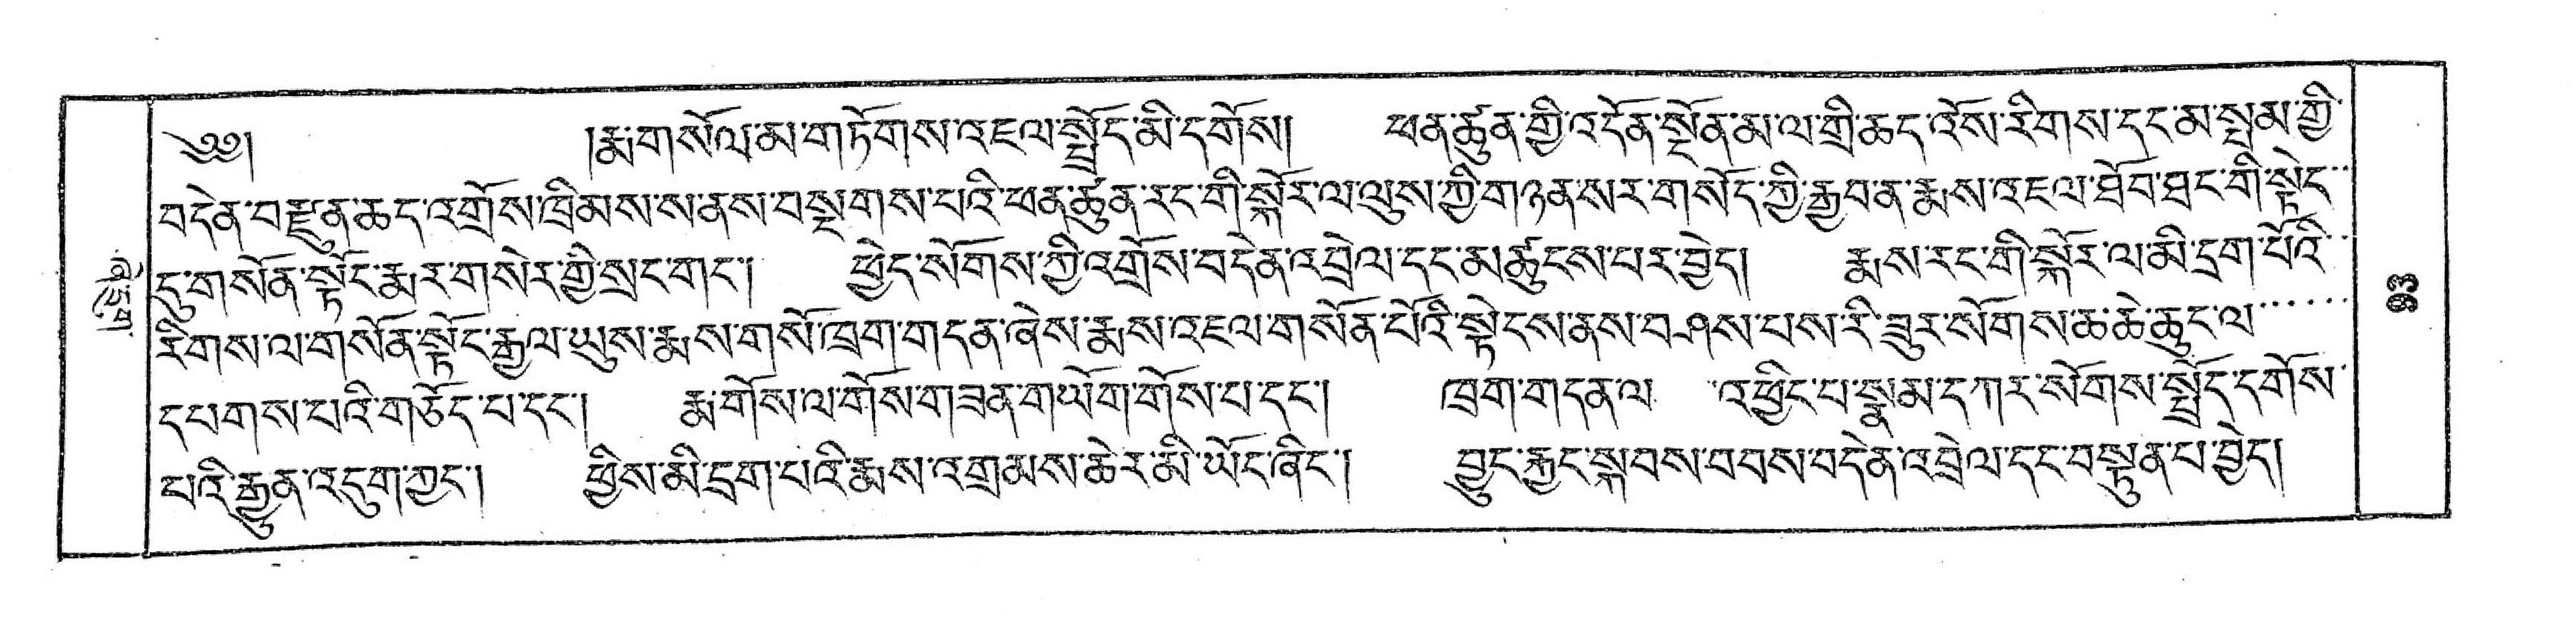 ༄༅། །རྨ་གསོལ་མ་གཏོགས་འཇལ་སྤྲོད་མི་དགོས། ཕན་ཚུན་གྱི་འདོན་སྔོན་མ་ལ་གྲི་ཆད་འོས་རིགས་དང་མ་སྤྲམ་གྱི་
བདེན་བརྫུན་ཆད་འགྲོས་ཁྲིམས་ས་ནས་བསྔགས་པའི་ཕན་ཚུན་རང་གི་སྐོར་ལ་ལུས་ཀྱི་གཉན་སར་གསོད་ཀྱི་རྒྱབན་རྨས་འཇལ་ཐོབ་ཐང་གི་སྟེང་
དུ་གསོན་སྟོང་རྨར་གསེར་གྱི་སྲང་གང་། ཕྱེད་སོགས་ཀྱི་འགྲོས་བདེན་འབྲེལ་དང་མཚུངས་པར་བྱེད། རྨས་རང་གི་སྐོར་ལ་མི་དྲག་པོའི་
རིགས་ལ་གསོན་སྟོང་རྒྱལ་ཡུས་རྨས་གསོ་ཁྲག་གདན་ཞེས་རྨས་འཇལ་གསོན་པོའི་སྟེངས་ནས་བཤས་པས་རི་ཟུར་སོགས་ཆ་ཆེ་ཆུང་ལ་
དཔགས་པའི་གཅོད་པ་དང་། རྨ་གོས་ལ་གོས་གཟན་གཡོག་གོས་པ་དང་། ཁྲག་གདན་ལ འཕྱིང་པ་སྣམ་དཀར་སོགས་སྤྲོད་དགོས་
པའི་རྒྱུན་འདུག་ཀྱང་། ཕྱིས་མི་དྲག་པའི་རྨས་འགྲམས་ཆེར་མི་ཡོང་ཞིང་། བྱུང་རྐྱང་སྐབས་བབས་བདེན་འབྲེལ་དང་བསྟུན་པ་བྱེད།
༧༣